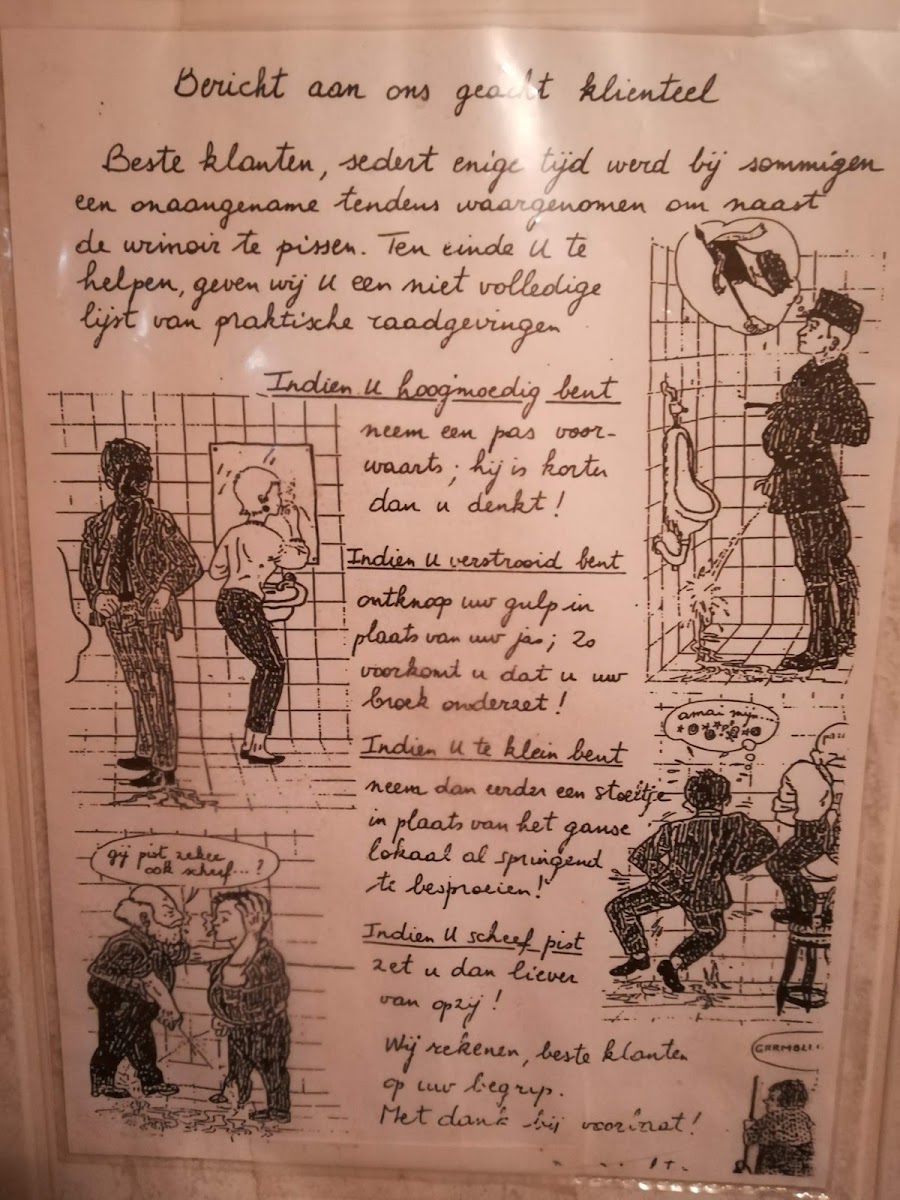 Bericht aan ons geacht klienteel
Beste klanten, sedert enige tijd werd bij sommigen
een onaangename tendens waargenomen om naast
de urinoir te pissen. Ten einde U te
helpen, geven wij U een niet volledige
lijst van praktische raadgevingen
Indien U hoogmoedig bent
neem een pas voor-
waarts; hij is korter
dan u denkt!
Indien U verstrooid bent
ontknoop uw gulp in
plaats van uw jas; zo
voorkomt u dat u uw
broek onderzet!
amai mijn...
Indien U te klein bent
neem dan eerder een stoeltje
in plaats van het ganse
lokaal al springend
te besproeien!
gij pist zeker
ook scheef...?
Indien U scheef pist
zet u dan liever
van opzij!
Wij rekenen, beste klanten
op uw begrip.
Met dank bij voorbaat!
GRRMBL!!